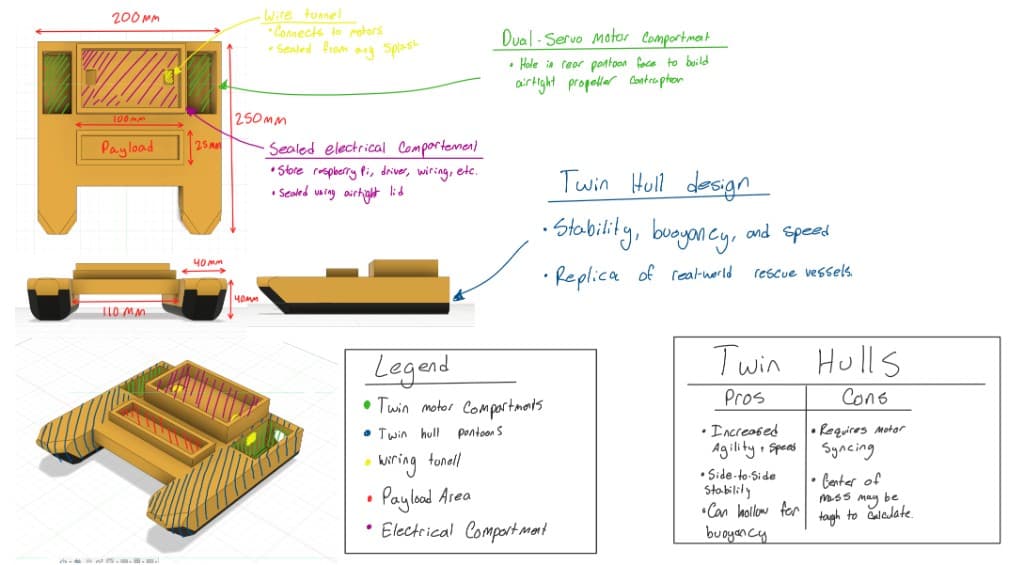 200mm
Wire tunnel
• Connects to motors
• Sealed from any splash
Dual-Servo Motor Compartment
• Hole in rear pontoon face to build
airtight propeller contraption
250mm
100mm
Payload
25mm
Sealed electrical Compartement
• Store raspberry Pi, driver, wiring, etc.
• Sealed using airtight lid
Twin Hull design
• Stability, buoyancy, and speed
• Replica of real-world rescue vessels.
40mm
40mm
110 mm
Legend
• Twin motor Compartments
• Twin hull pontoons
• Wiring tunell
• Payload Area
• Electrical Compartment
Twin Hulls
Pros
Cons
• Increased
Agility + Speed
• Side-to-Side
Stability
• Can hollow for
buoyancy
• Requires Motor
Syncing
• Center of
mass may be
tough to calculate.